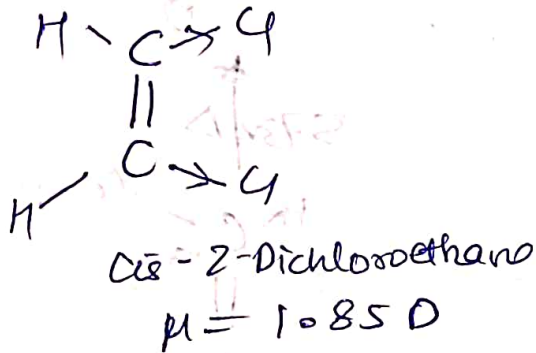 H C Cl
C Cl
H
Cis-2-Dichloroethano
μ = 1.85 D